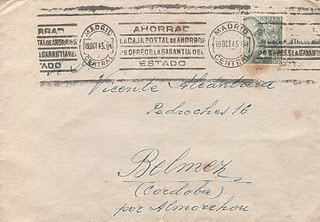 AHORRAD
LA CAJA POSTAL DE AHORROS
OS OFRECE LA GARANTIA DEL
ESTADO
MADRID
19 OCT 45
CENTRAL
AHORRAD
LA CAJA POSTAL DE AHORROS
OS OFRECE LA GARANTIA DEL
ESTADO
MADRID
19 OCT 45
CENTRAL
Vicente Alcántara
Pedroches 16
Belmez
(Cordoba)
por Almorchon